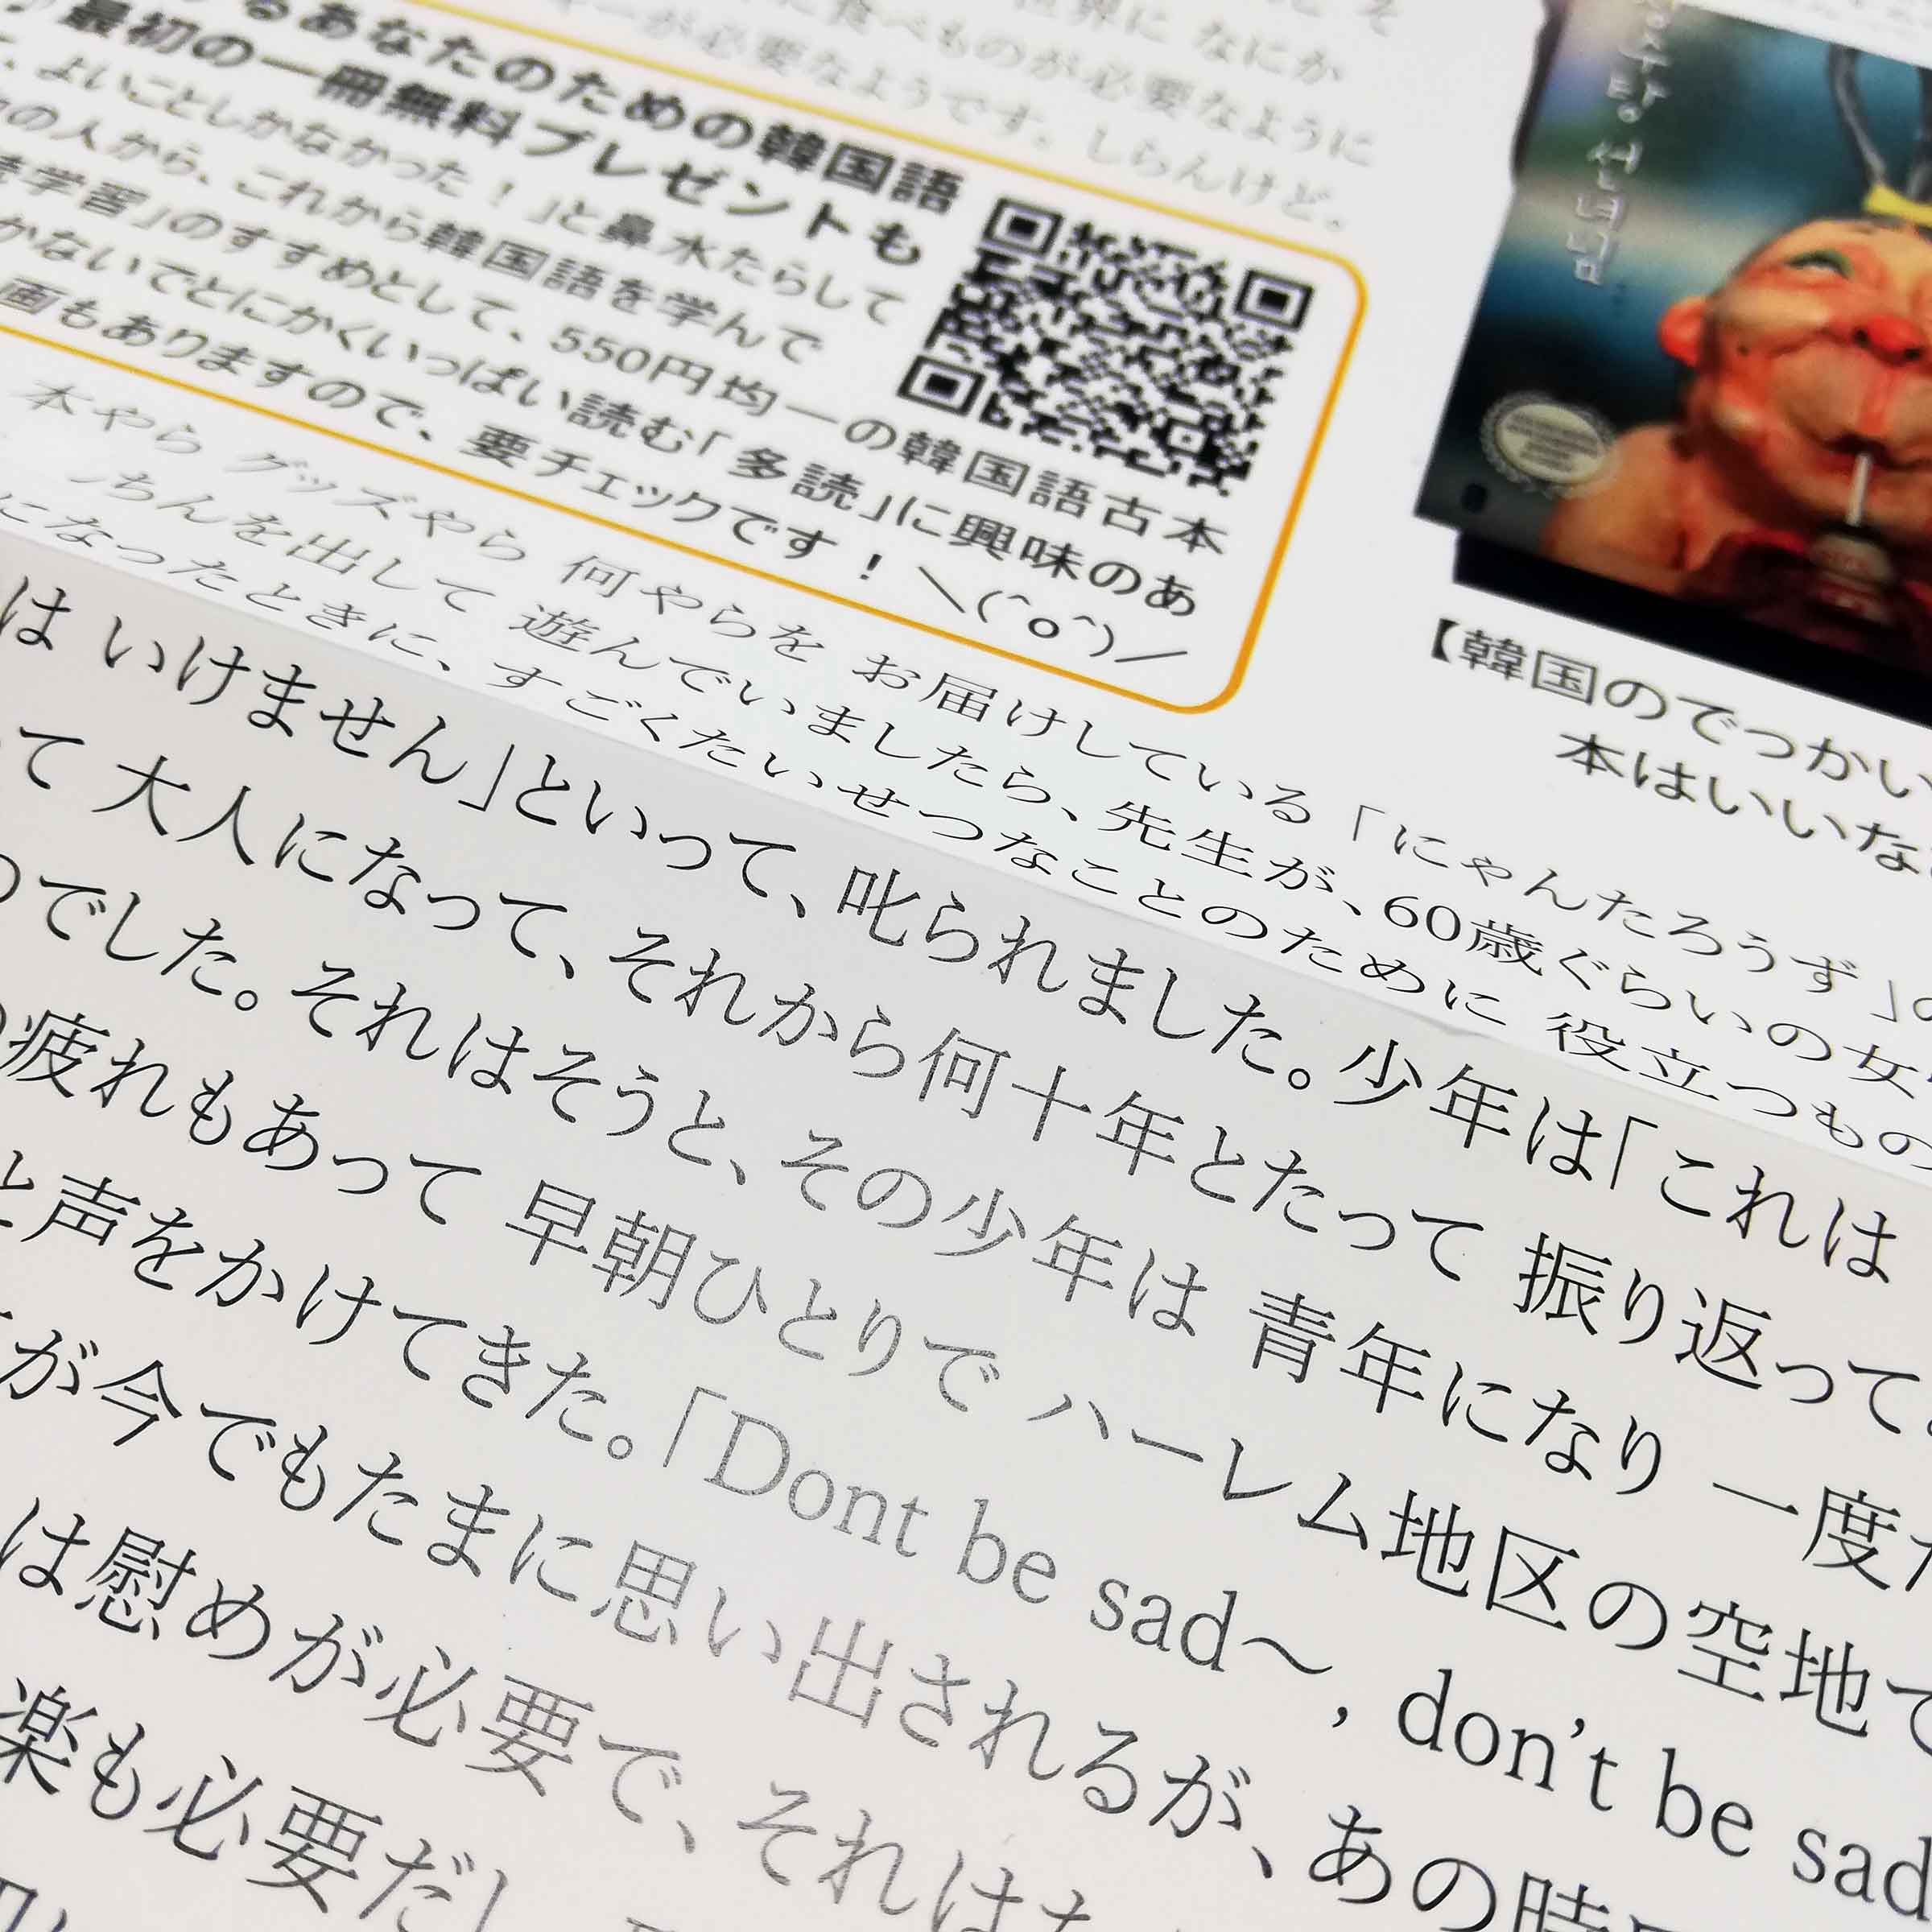 世界に なにか
に食べものが必要なように
が必要なようです。しらんけど。
るあなたのための韓国語
最初の一冊無料プレゼントも
、よいことしかなかった！」と鼻水たらして
の人から、これから韓国語を学んで
学習」のすすめとして、550円均一の韓国語古本
かないでとにかくいっぱい読む「多読」に興味のあ
画もありますので、要チェックです！＼(^o^)／
선녀님
【韓国のでっかい
本はいいな
本やら グッズやら 何やらを お届けしている「にゃんたろうず」の
ちんを出して 遊んでいましたら、先生が、60歳ぐらいの女
になったときに、すごくたいせつなことのために 役立つもの
は いけません」といって、叱られました。少年は「これは
て 大人になって、それから何十年とたって 振り返って
のでした。それはそうと、その少年は 青年になり 一度
疲れもあって 早朝ひとりで ハーレム地区の空地で
と声をかけてきた。「Dont be sad〜, don't be sad
が今でもたまに思い出されるが、あの時
は慰めが必要で、それは
楽も必要だし